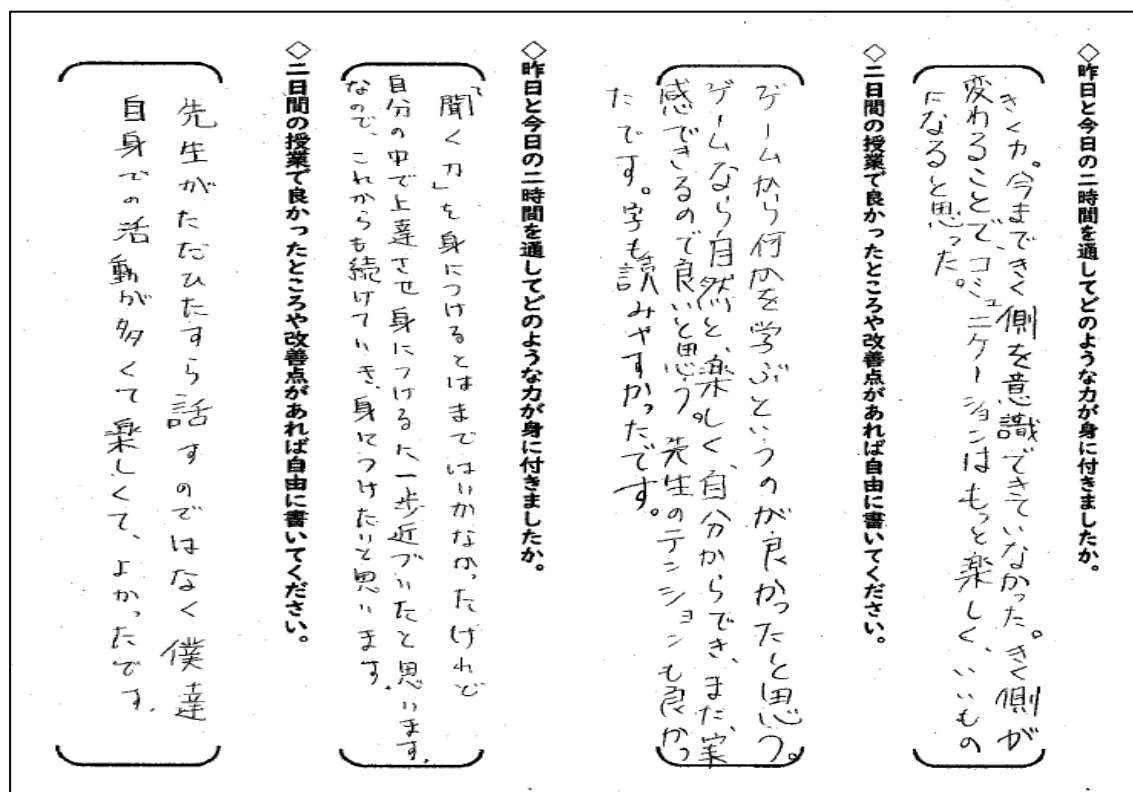 ◇昨日と今日の二時間を通してどのような力が身に付きましたか。
きく力。今まできく側を意識できていなかった。きく側が
変わることで、コミュニケーションはもっと楽しく、いいもの
になると思った。
◇二日間の授業で良かったところや改善点があれば自由に書いてください。
ゲームから何かを学ぶというのが良かったと思う。
ゲームなら自然と、楽しく、自分からでき、また、実
感できるので良いと思う。先生のテンションも良かっ
たです。字も読みやすかったです。
◇昨日と今日の二時間を通してどのような力が身に付きましたか。
「聞く力」を身につけるとはまではいかなかったけれど
自分の中で上達させ身につけるた一歩近づいたと思います。
なので、これからも続けていき、身につけたいと思います。
◇二日間の授業で良かったところや改善点があれば自由に書いてください。
先生がただひたすら話すのではなく僕達
自身での活動が多くて楽しくて、よかったです。